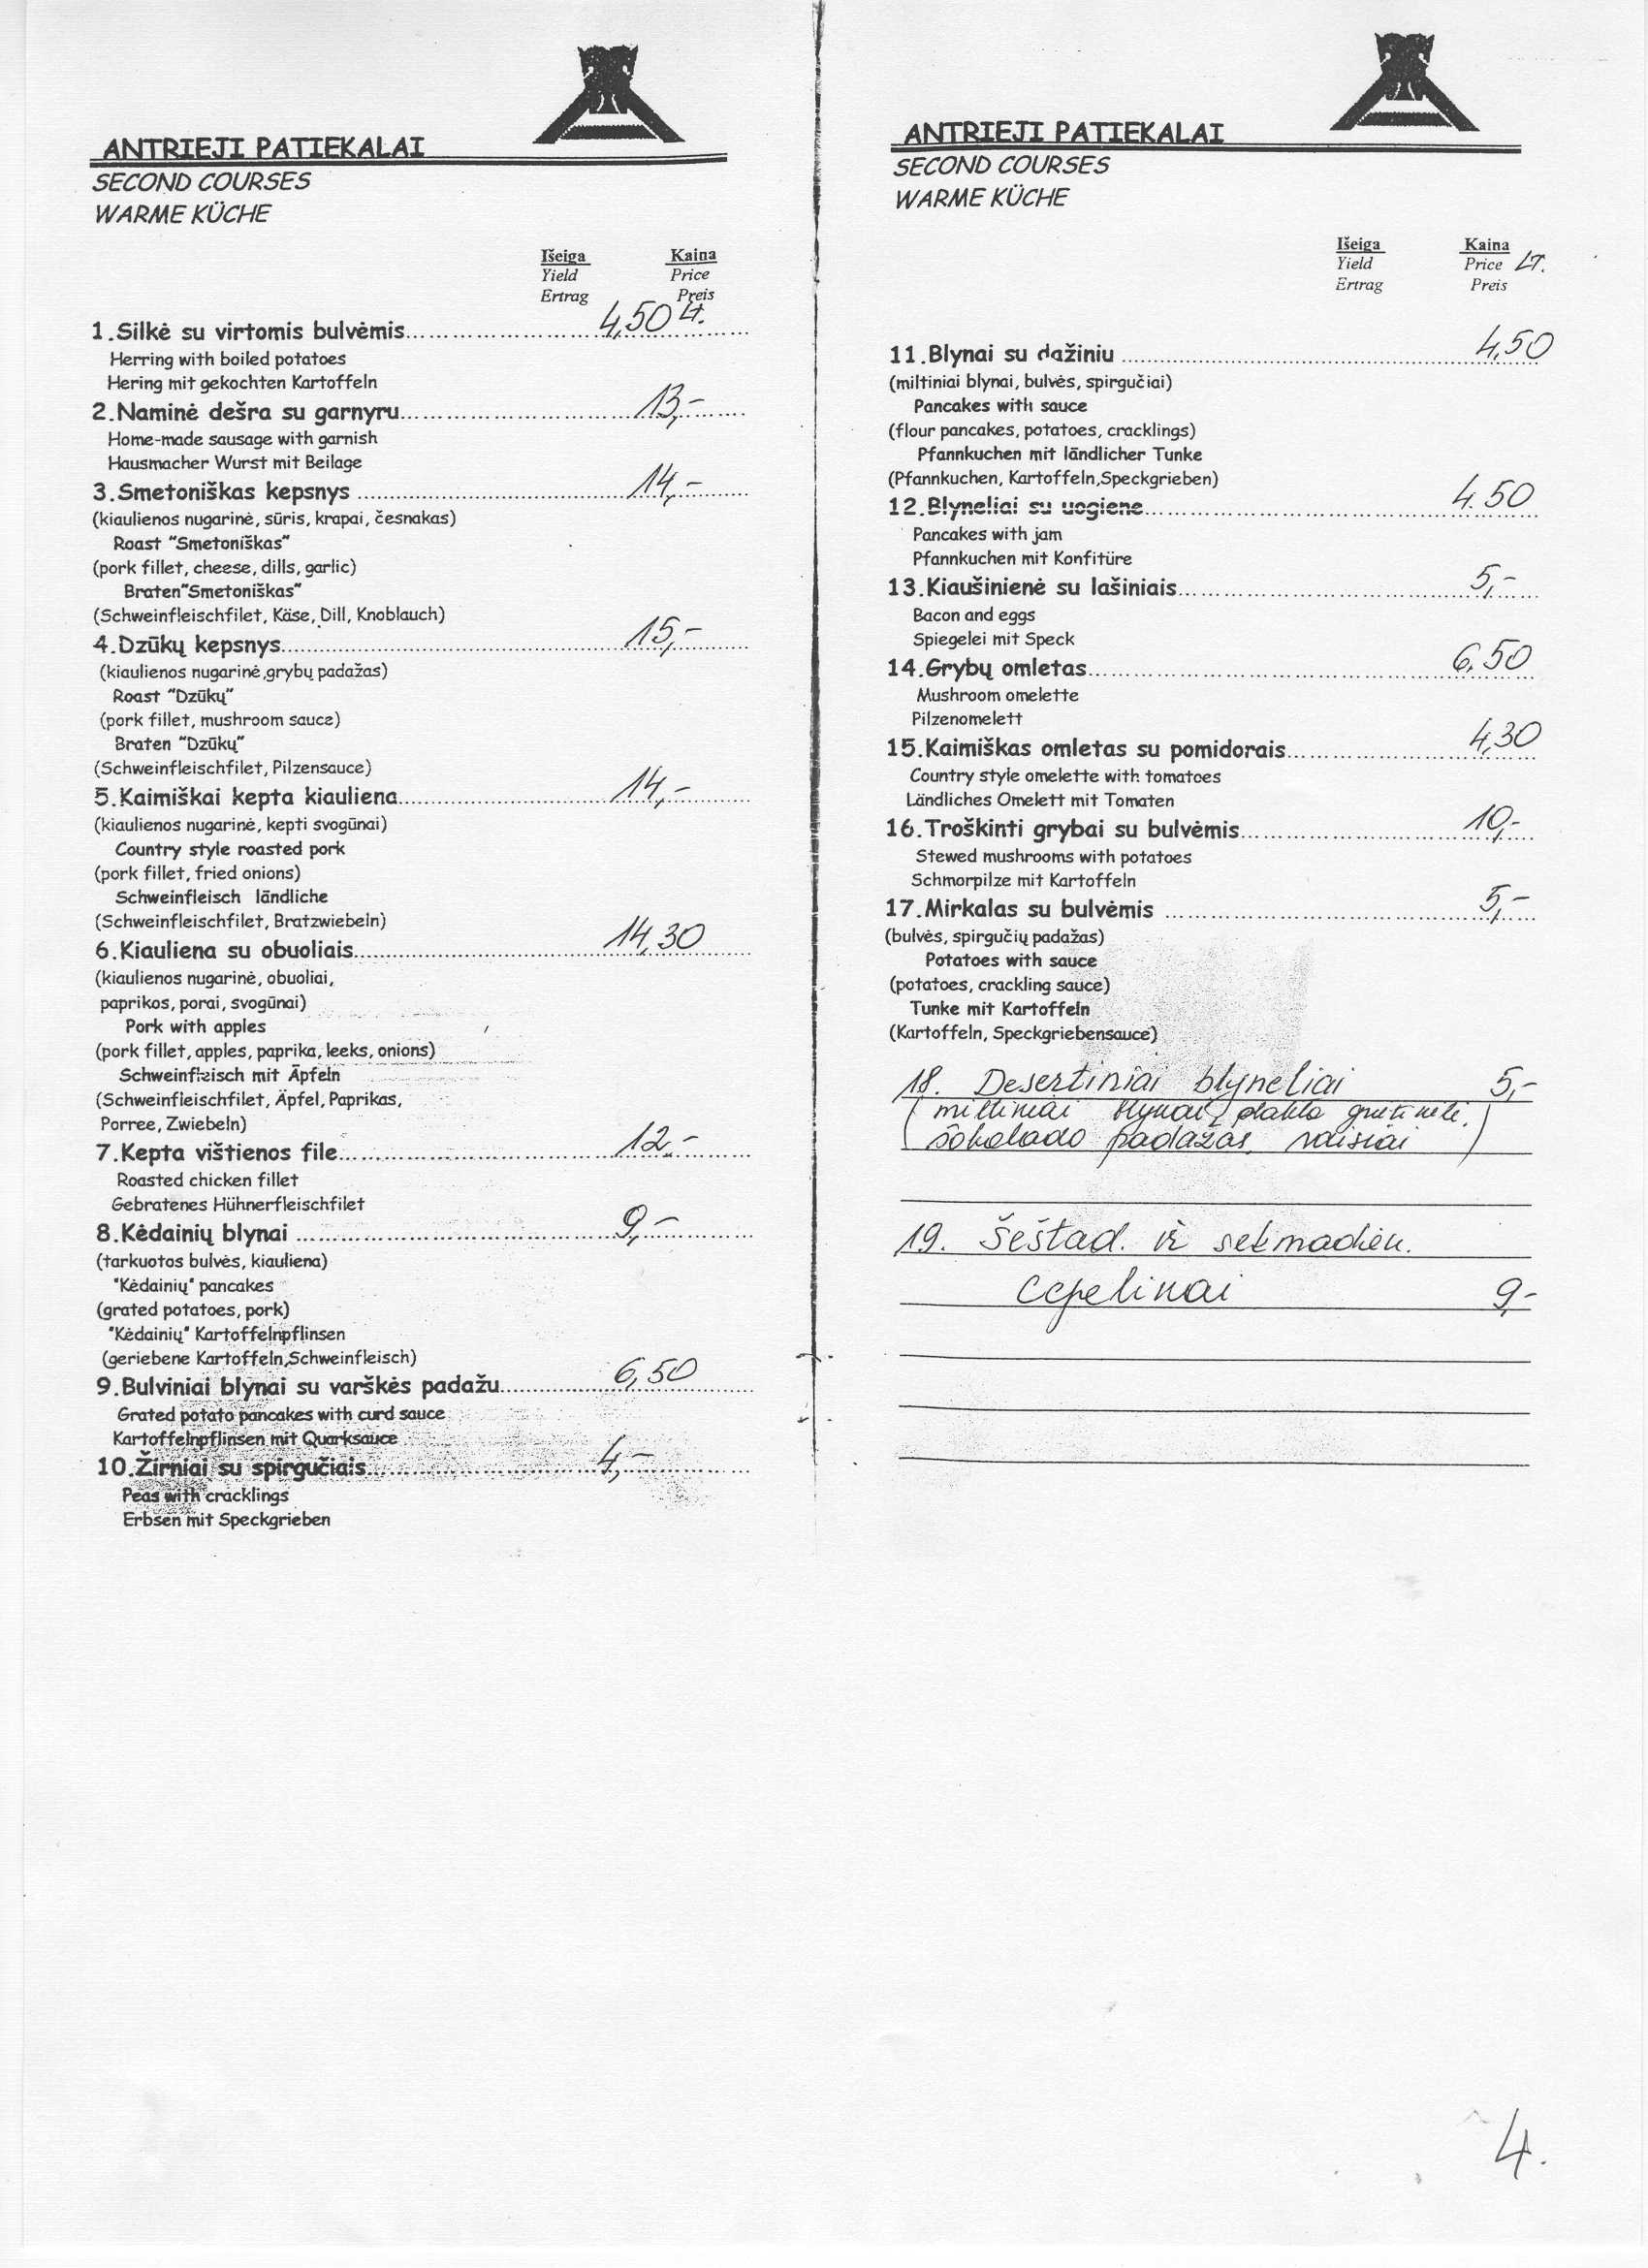 ANTRIEJI PATIEKALAI
SECOND COURSES
WARME KÜCHE
Išeiga Kaina
Yield Price
Ertrag Preis
1.Silkė su virtomis bulvėmis 4,50 Lt.
Herring with boiled potatoes
Hering mit gekochten Kartoffeln
2.Naminė dešra su garnyru 13,-
Home-made sausage with garnish
Hausmacher Wurst mit Beilage
3.Smetoniškas kepsnys 14,-
(kiaulienos nugarinė, sūris, krapai, česnakas)
Roast "Smetoniškas"
(pork fillet, cheese, dills, garlic)
Braten"Smetoniškas"
(Schweinfleischfilet, Käse, Dill, Knoblauch)
4.Dzūkų kepsnys 15,-
(kiaulienos nugarinė,grybų padažas)
Roast "Dzūkų"
(pork fillet, mushroom sauce)
Braten "Dzūkų"
(Schweinfleischfilet, Pilzensauce)
5.Kaimiškai kepta kiauliena 14,-
(kiaulienos nugarinė, kepti svogūnai)
Country style roasted pork
(pork fillet, fried onions)
Schweinfleisch ländliche
(Schweinfleischfilet, Bratzwiebeln)
6.Kiauliena su obuoliais 14,30
(kiaulienos nugarinė, obuoliai,
paprikos, porai, svogūnai)
Pork with apples
(pork fillet, apples, paprika, leeks, onions)
Schweinfleisch mit Äpfeln
(Schweinfleischfilet, Äpfel, Paprikas,
Porree, Zwiebeln)
7.Kepta vištienos file 12,-
Roasted chicken fillet
Gebratenes Hühnerfleischfilet
8.Kėdainių blynai 9,-
(tarkuotos bulvės, kiauliena)
"Kėdainių" pancakes
(grated potatoes, pork)
"Kėdainių" Kartoffelnpflinsen
(geriebene Kartoffeln,Schweinfleisch)
9.Bulviniai blynai su varškės padažu 6,50
Grated potato pancakes with curd sauce
Kartoffelnpflinsen mit Quarksauce
10.Žirniai su spirgučiais 4,-
Peas with cracklings
Erbsen mit Speckgrieben
ANTRIEJI PATIEKALAI
SECOND COURSES
WARME KÜCHE
Išeiga Kaina
Yield Price LT.
Ertrag Preis
11.Blynai su dažiniu 4,50
(miltiniai blynai, bulvės, spirgučiai)
Pancakes with sauce
(flour pancakes, potatoes, cracklings)
Pfannkuchen mit ländlicher Tunke
(Pfannkuchen, Kartoffeln,Speckgrieben)
12.Blyneliai su uogiene 4.50
Pancakes with jam
Pfannkuchen mit Konfitüre
13.Kiaušinienė su lašiniais 5,-
Bacon and eggs
Spiegelei mit Speck
14.Grybų omletas 6.50
Mushroom omelette
Pilzenomelett
15.Kaimiškas omletas su pomidorais 4,30
Country style omelette with tomatoes
Ländliches Omelett mit Tomaten
16.Troškinti grybai su bulvėmis 10,-
Stewed mushrooms with potatoes
Schmorpilze mit Kartoffeln
17.Mirkalas su bulvėmis 5,-
(bulvės, spirgučių padažas)
Potatoes with sauce
(potatoes, crackling sauce)
Tunke mit Kartoffeln
(Kartoffeln, Speckgriebensauce)
18. Desertiniai blyneliai 5,-
(miltiniai blynai, plakta grietinėlė,
šokolado padažas, vaisiai)
19. Šeštad. ir sekmadien.
Cepelinai 9,-
4.